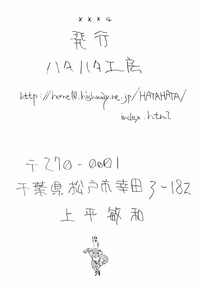 発行
ハタハタ工房
http://home10.highway.ne.jp/HATAHATA/
index.html
〒270-0001
千葉県松戸市幸田3-182
上平敏和